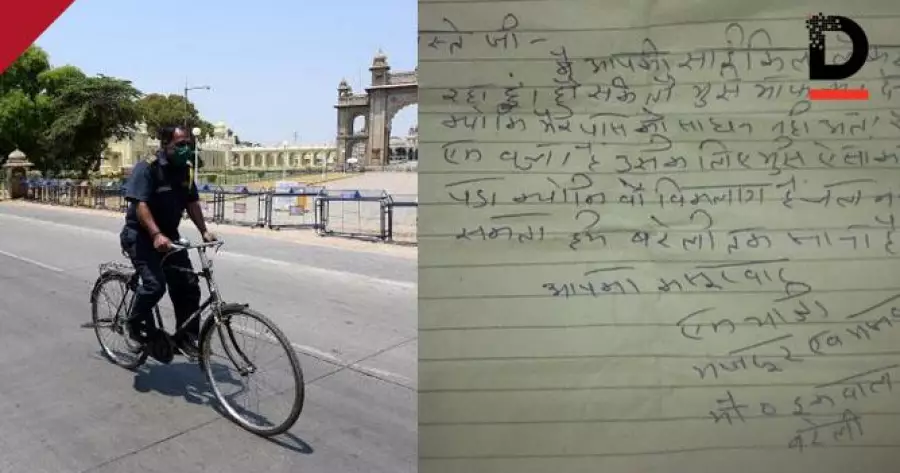 D
स्ते जी -
मै आपकी साईकिल लेकर
रहा हूं। हो सके तो मुझे माफ कर दे
क्योकि मेरे पास को साधन नही
एक है उसके लिए मुझे ऐसा क
पड़ा क्योकि वो विकलाग है चल न
सकता हमे बरेली तक जाना है
आपका कसूरवार
एक यात्री
मजदूर एवम
मो०
बरेली